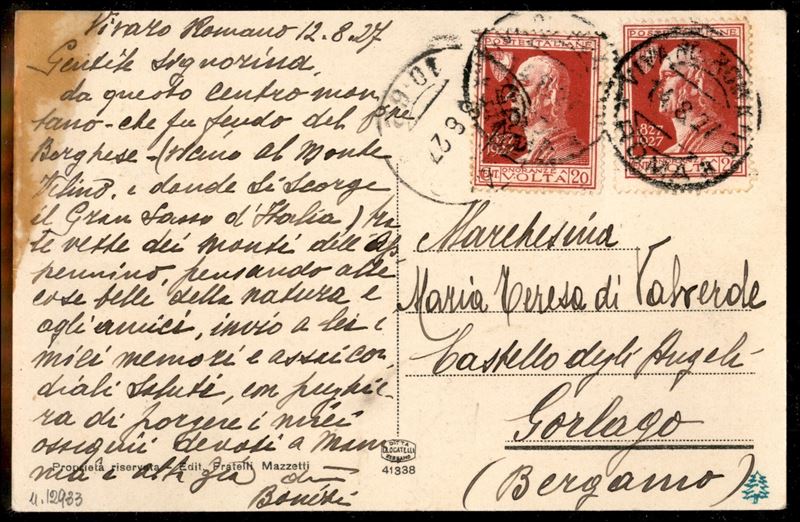 Vivaro Romano 12.8.27
Gentile Signorina,
da questo centro mon
tano - che fu feudo del
Borghese - (vicino al Monte
e donde si scorge
il Gran Sasso d'Italia) tra
le vette dei monti dell'Ap
pennino, pensando alle
cose belle della natura e
agli amici, invio a lei i
miei memori e assai cor
diali saluti, con preghie
ra di porgere i miei
ossequii devoti a Mam
ma e alla Zia
Proprietà riservata - Edit. Fratelli Mazzetti
n. 12933
DITTA
C. LOCATELLI
BERGAMO
41338
POSTE ITALIANE
1827
1927
ONORANZE
CENT VOLTA 20
10.
8.27
VIVARO ROMANO
ROMA
8.27
1827
1927
VOLTA
Marchesina
Maria Teresa di Valverde
Castello degli Angeli
Gorlago
(Bergamo)